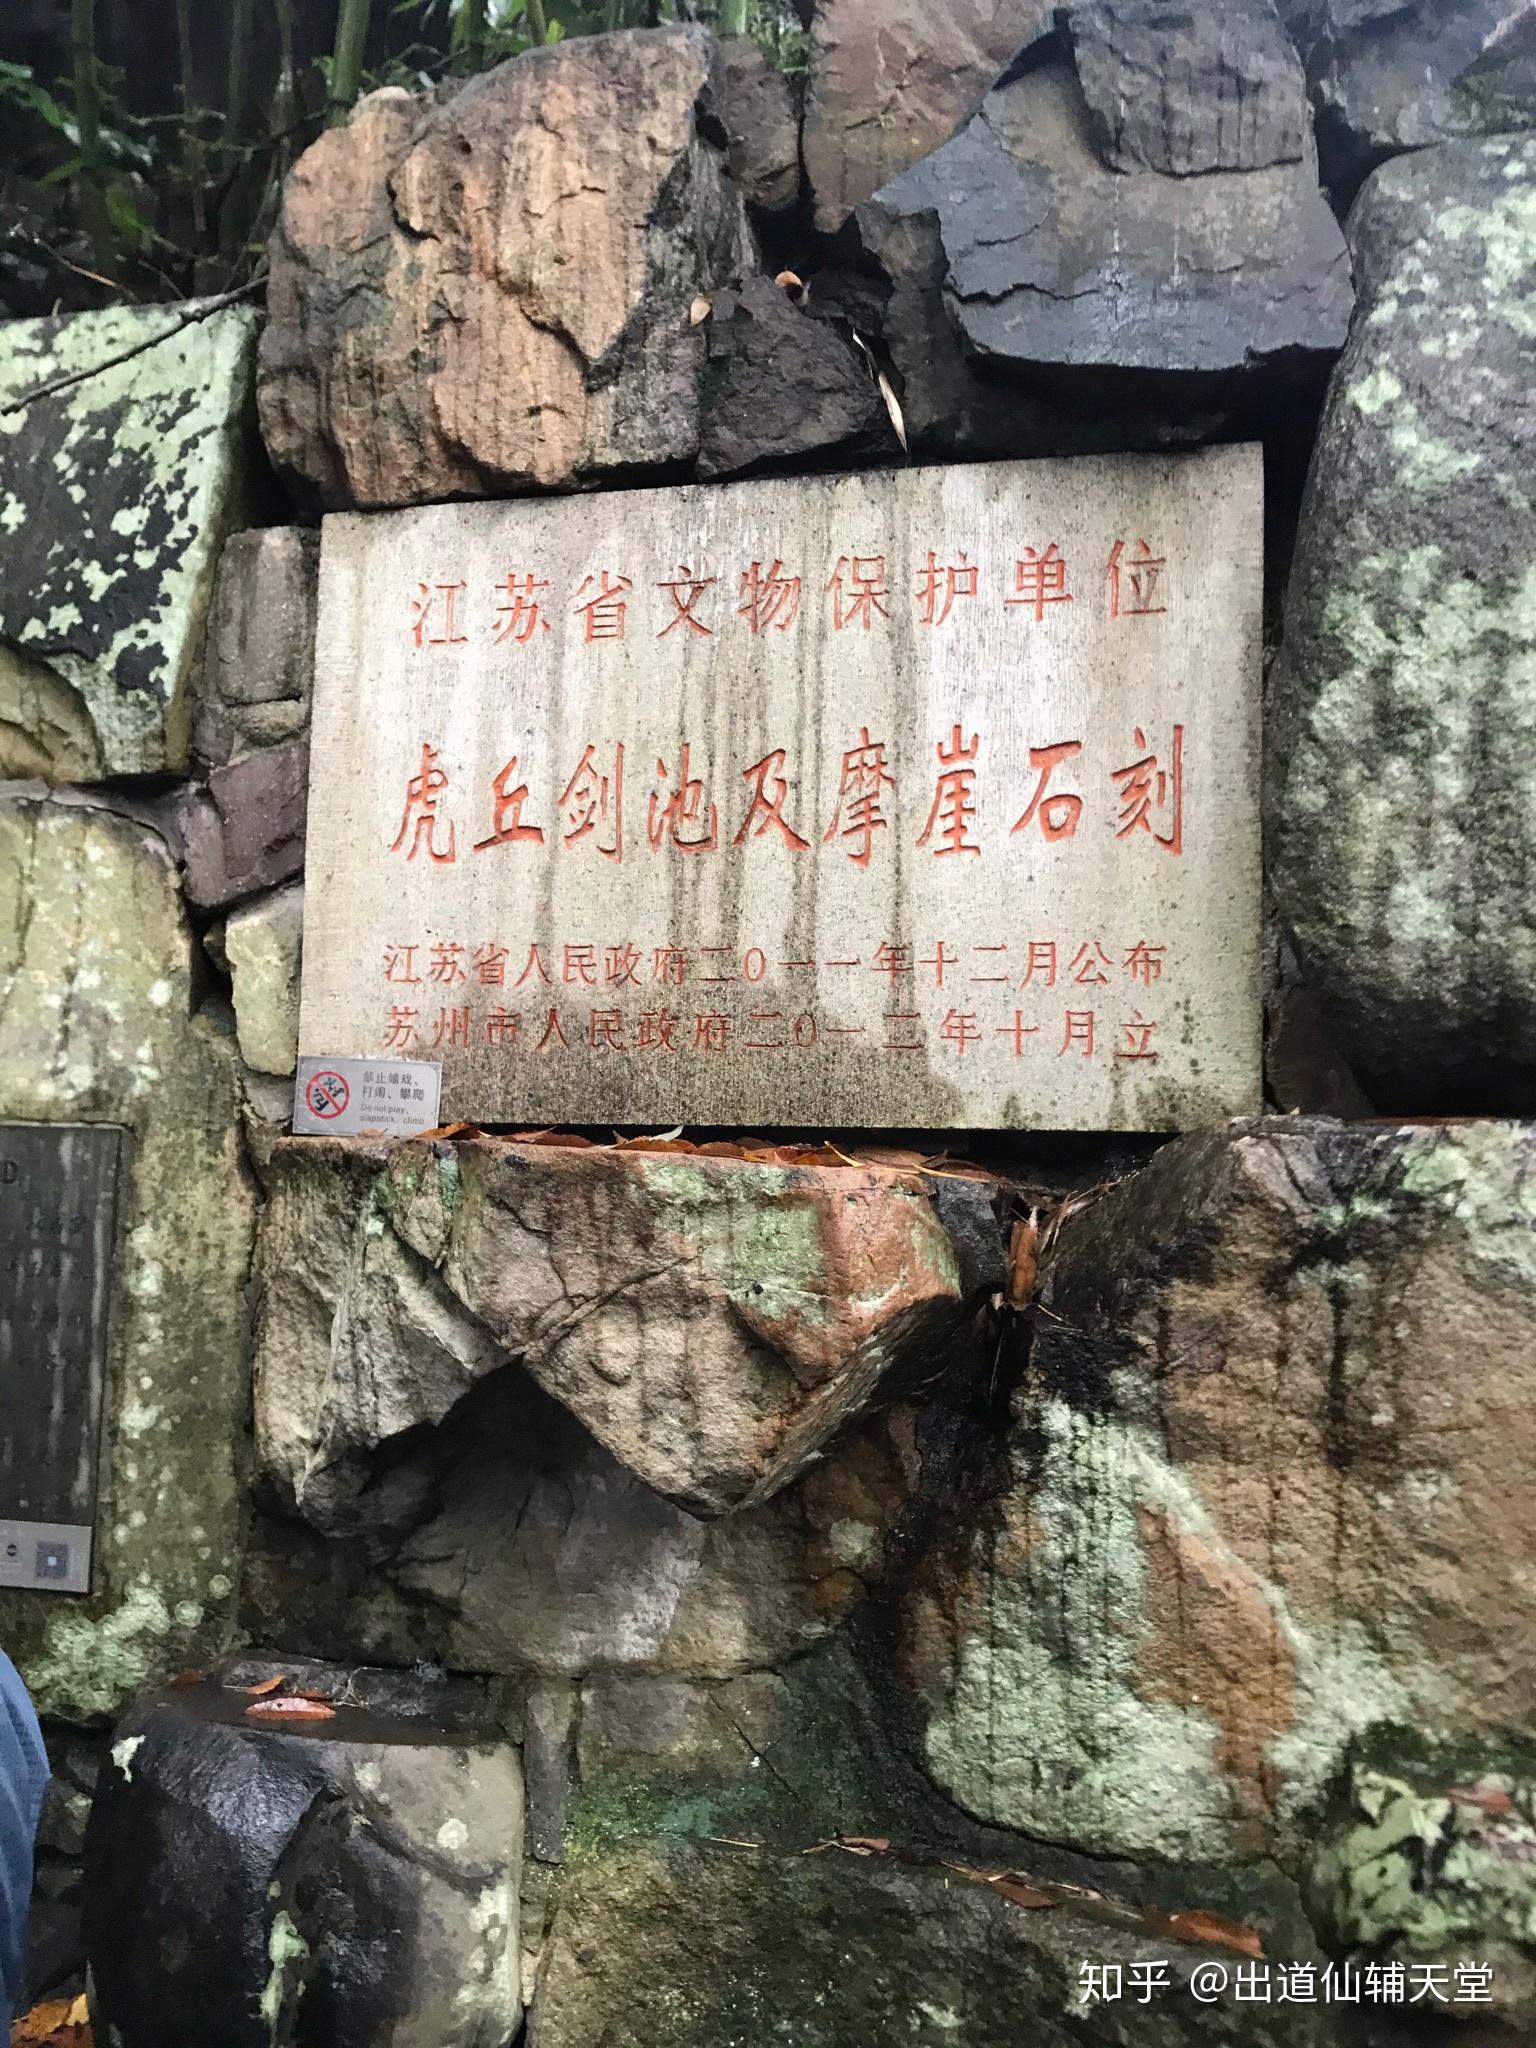 江苏省文物保护单位
虎丘剑池及摩崖石刻
江苏省人民政府二0一一年十二月公布
苏州市人民政府二0一二年十月立
禁止嬉戏、
打闹、攀爬
Do not play、
slapstick、climb
知乎 @出道仙辅天堂